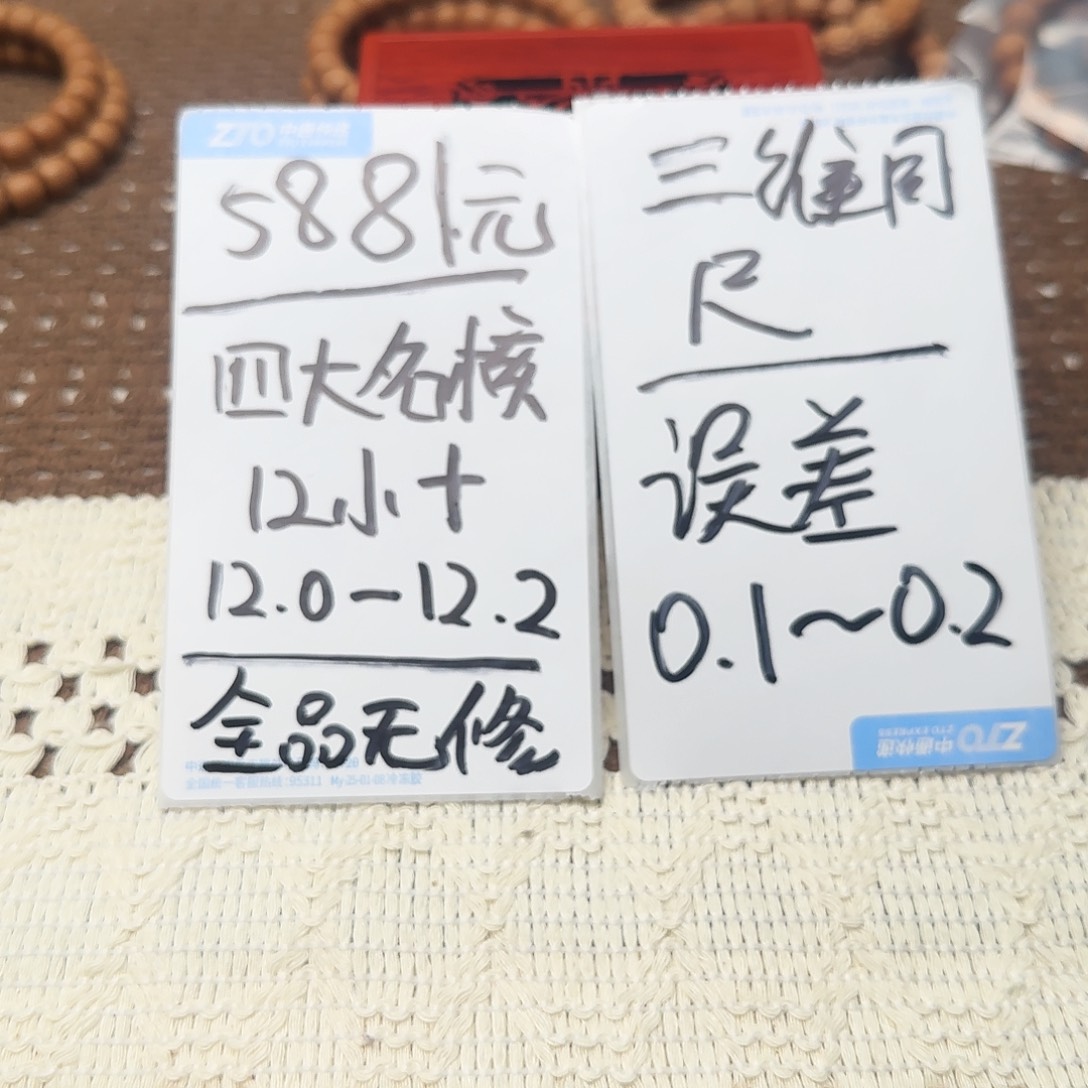 ZTO 中通快递
588元
四大名模
12小十
12.0-12.2
全品无修
全国统一客服热线:95311 My-25-B1-08冷冻胶
三维同
尺
误差
0.1~0.2
ZTO 中通快递
ZTO EXPRESS